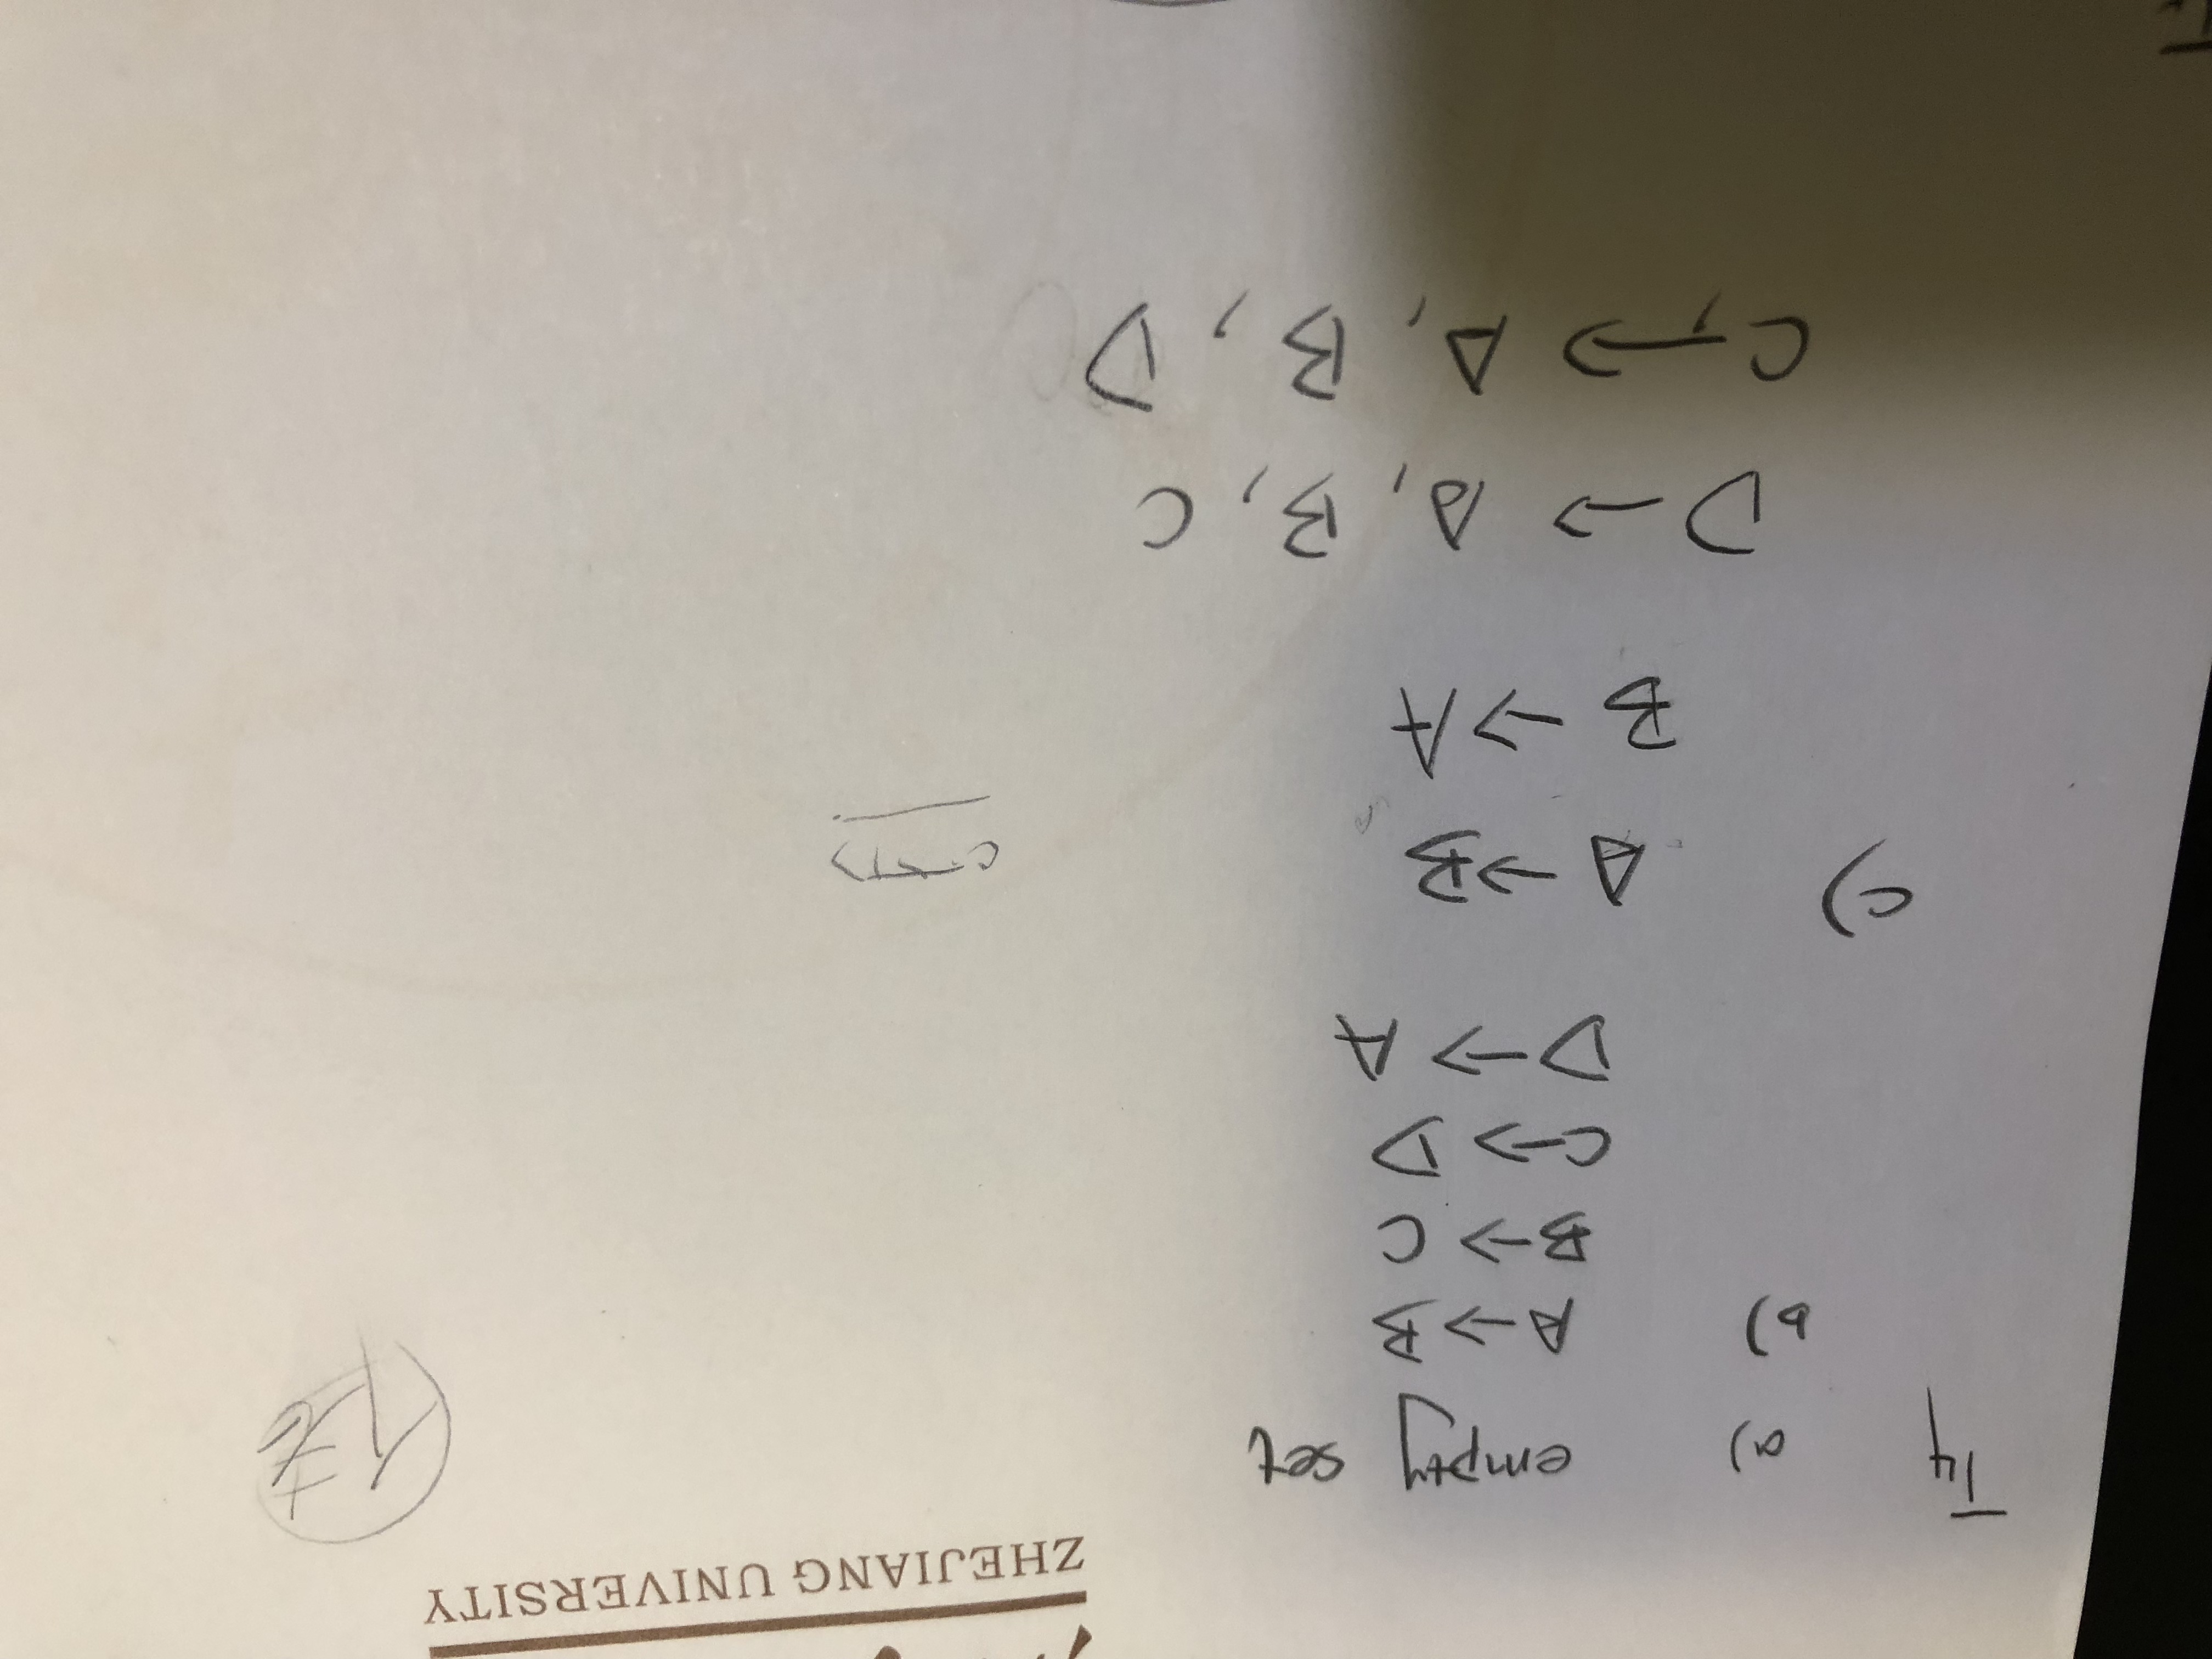 ZHEJIANG UNIVERSITY
T4 a) empty set
b) A→B
B→C
C→D
D→A
c) A→B
B→A
D→A, B, C
C→A, B, D